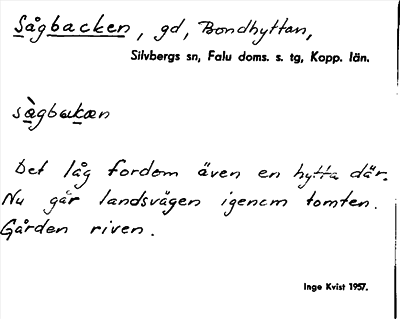 Sågbacken, gd, Bondhyttan,
Silvbergs sn, Falu doms. s. tg, Kopp. län.
sàgbakæn
Det låg fordom även en hytta där.
Nu går landsvägen igenom tomten.
Gården riven.
Inge Kvist 1957.